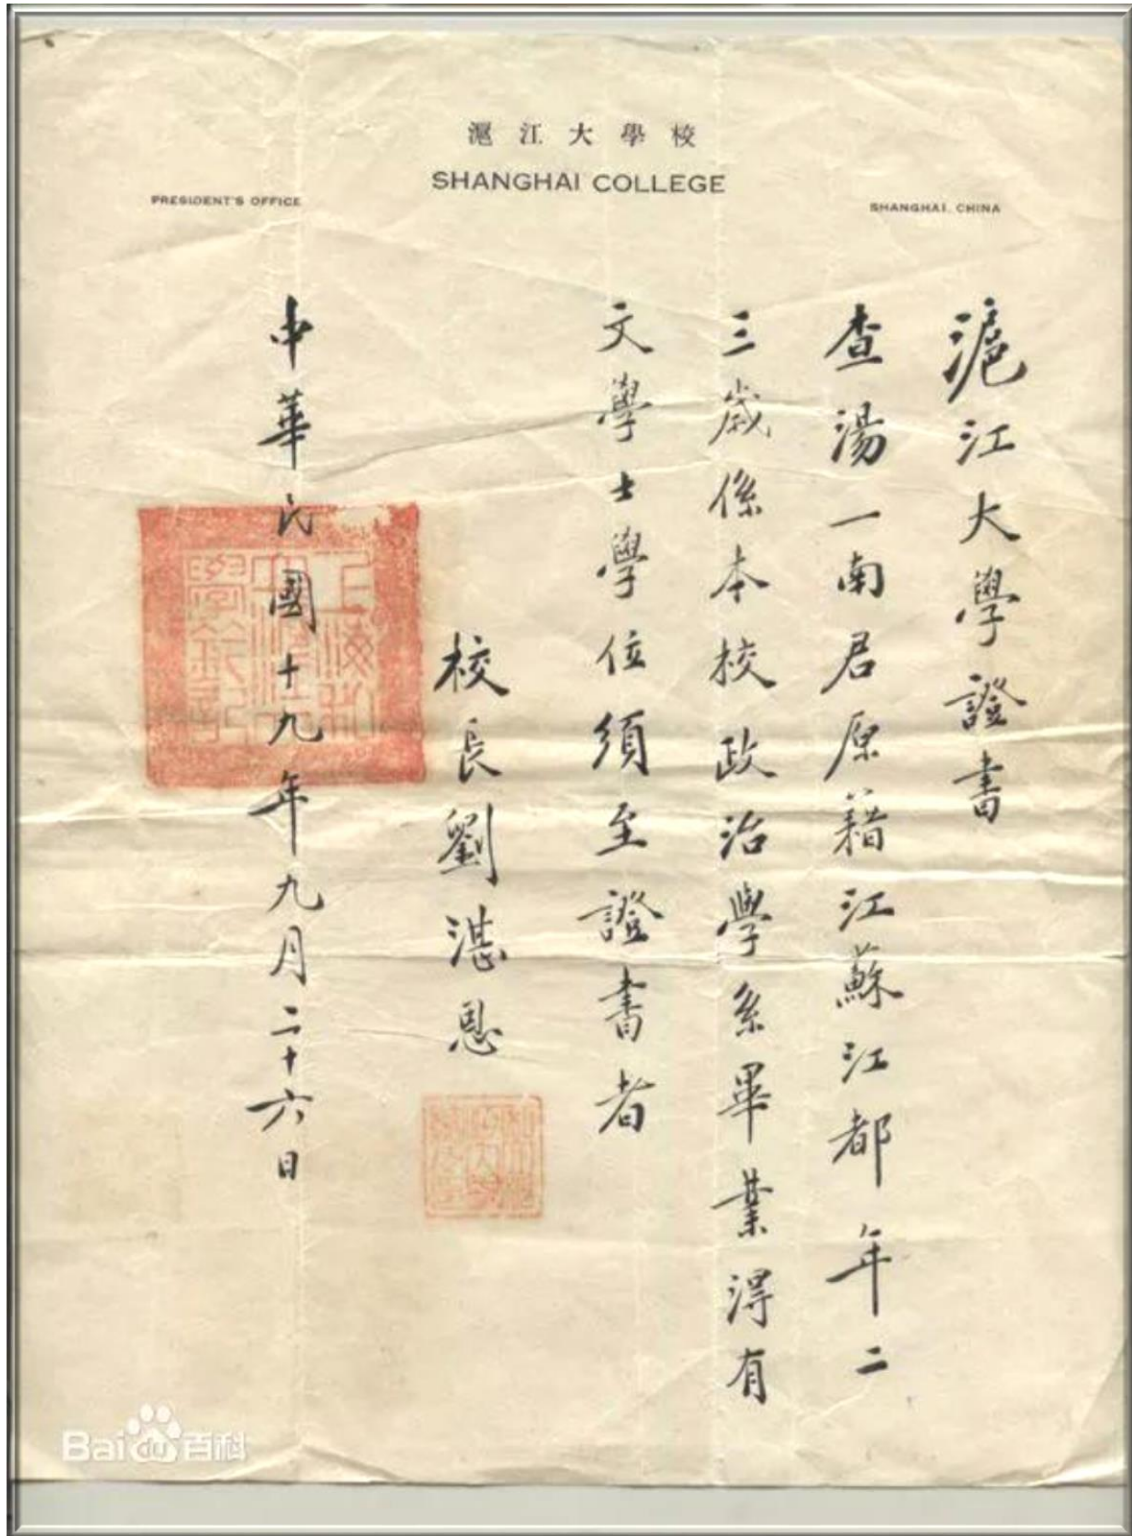 滬江大學校
SHANGHAI COLLEGE
PRESIDENT'S OFFICE
SHANGHAI, CHINA
滬江大學證書
查湯一南君原籍江蘇江都年二
三歲係本校政治學系畢業得有
文學士學位須至證書者
校長劉湛恩
中華民國十九年九月二十六日
上海私
立滬江大
學鈐記
Baidu百科